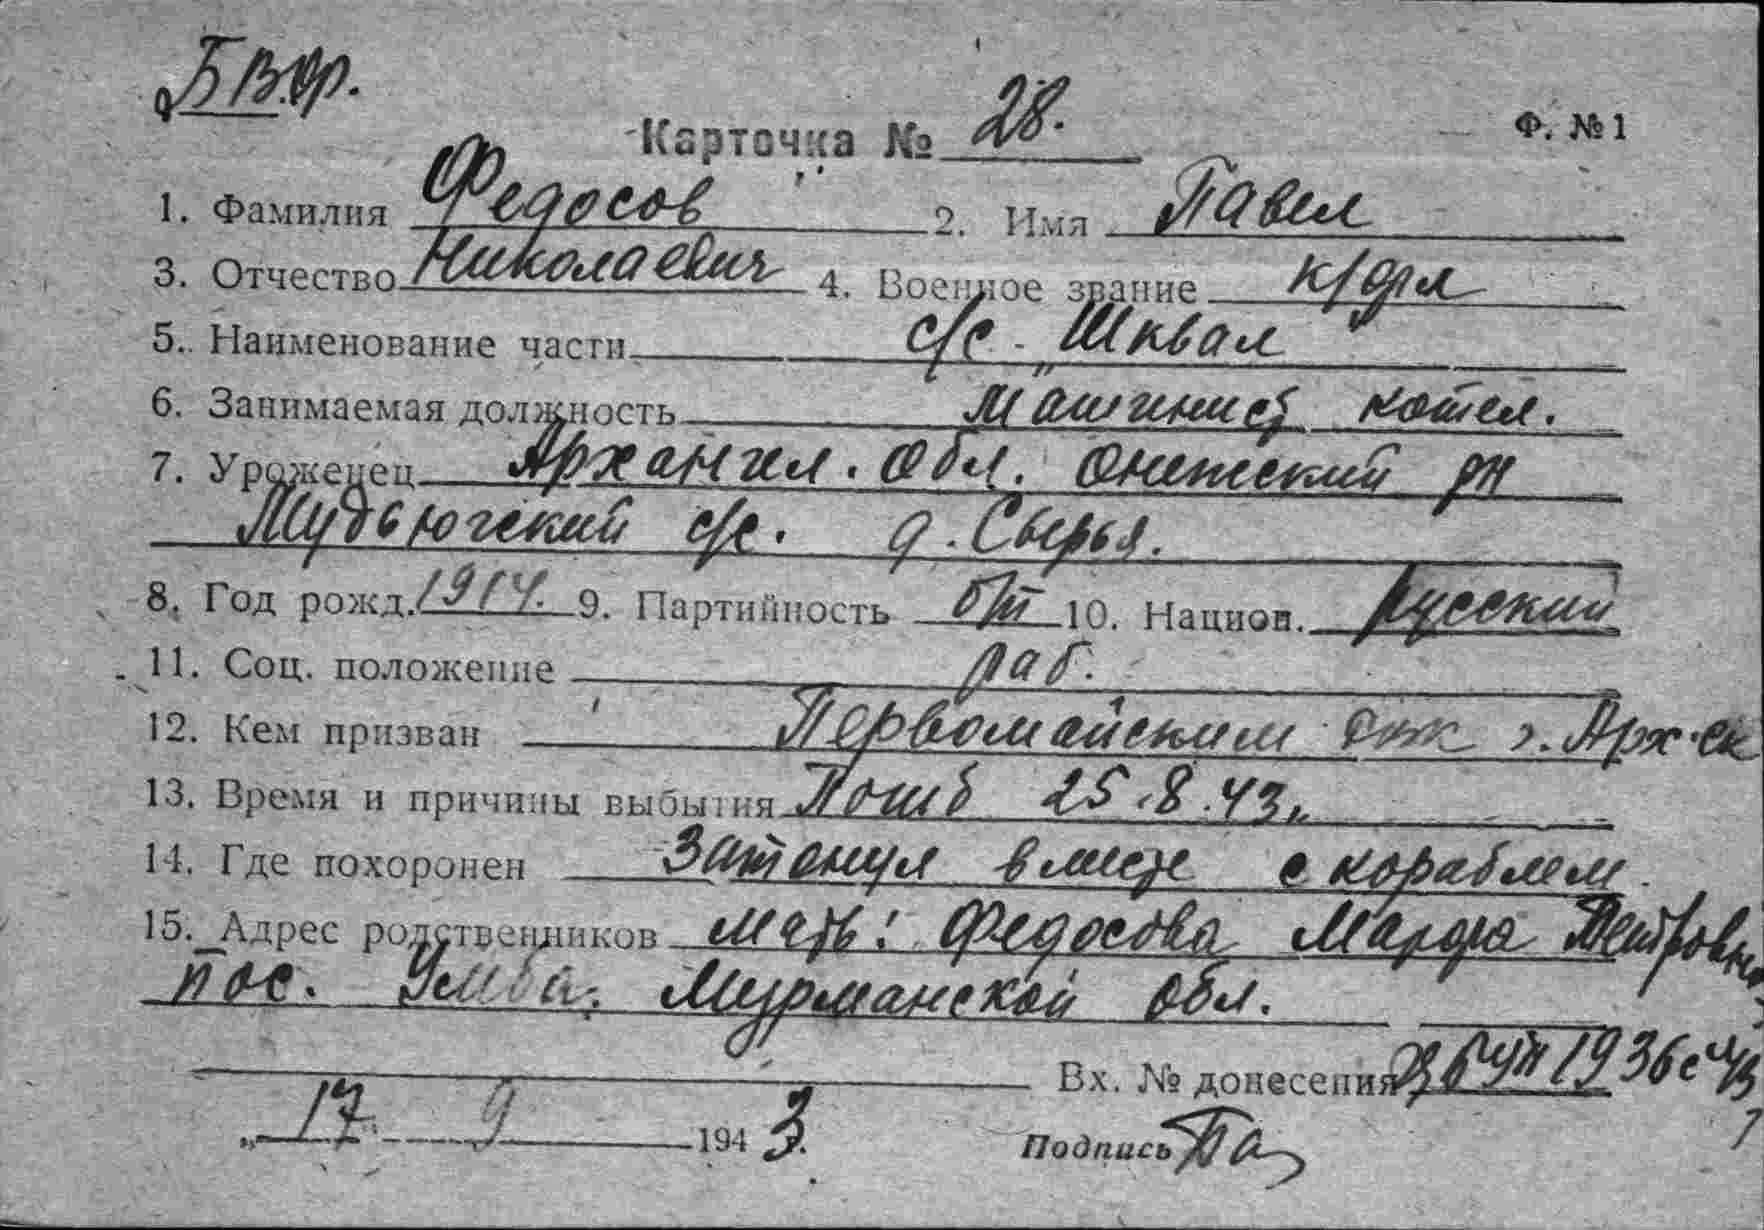 БВФ.
Карточка № 28. Ф. № 1
1. Фамилия Федосов 2. Имя Павел
3. Отчество Николаевич 4. Военное звание к/фл
5. Наименование части с/с - "Шквал
6. Занимаемая должность машинист котел.
7. Уроженец Архангел. обл. Онежский рн
Мудьюгский с/с. д. Сырья.
8. Год рожд. 1914. 9. Партийность б/п 10. Национ. русский
11. Соц. положение раб.
12. Кем призван Первомайским г. Арх-ск
13. Время и причины выбытия Погиб 25.8.43г.
14. Где похоронен Затонул вместе с кораблем.
15. Адрес родственников мать: Федосова Марфа Петровна
пос. Умба. Мурманской обл.
Вх. № донесения 1936с
„17" 9 1943.
Подпись